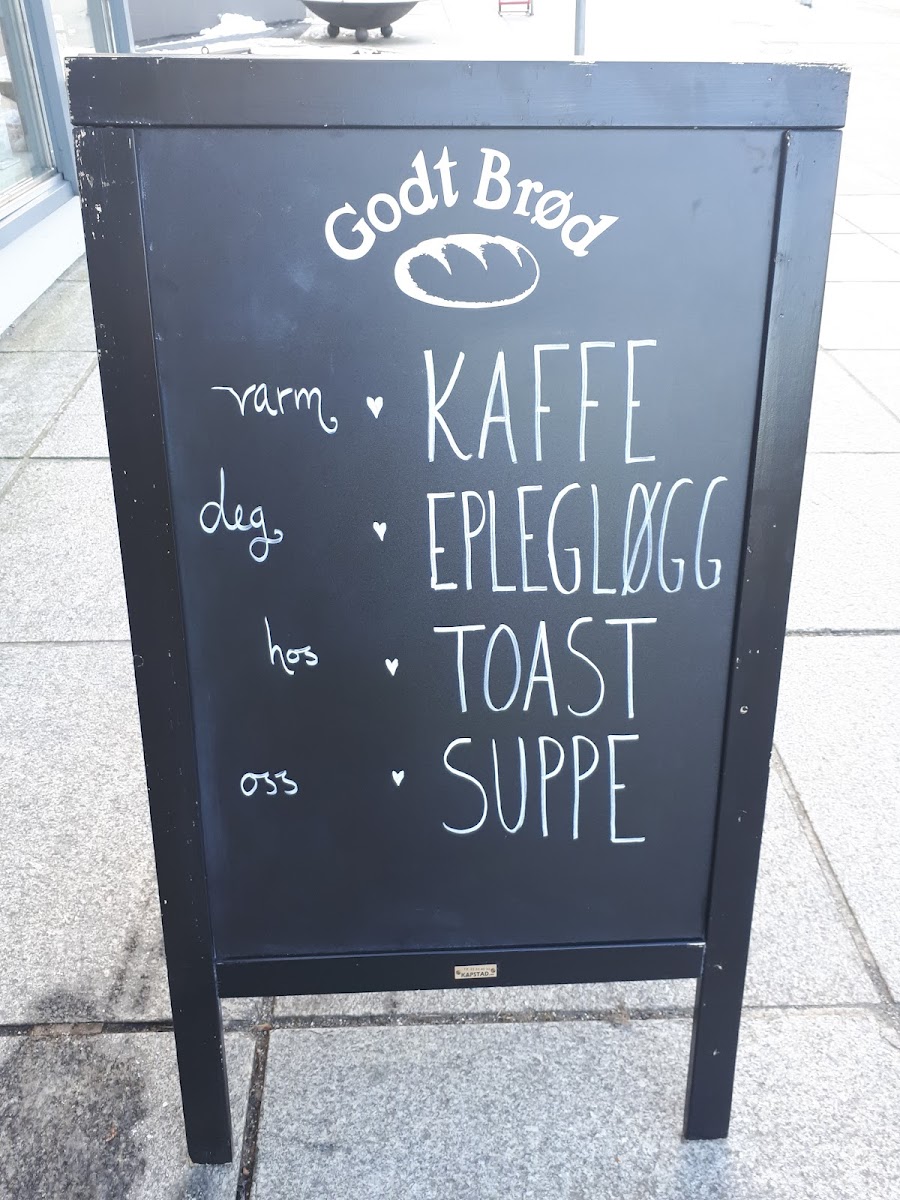 Godt Brød
varm ♥ KAFFE
deg ♥ EPLEGLØGG
hos ♥ TOAST
oss ♥ SUPPE
KAPSTAD